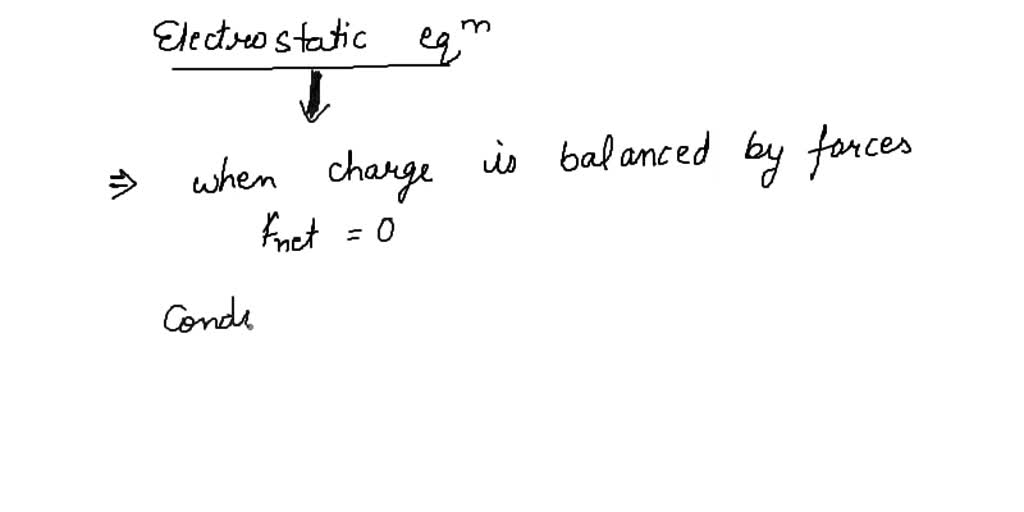 Electrostatic eqⁿ
⇒ when charge is balanced by forces
Fnet = 0
Condu